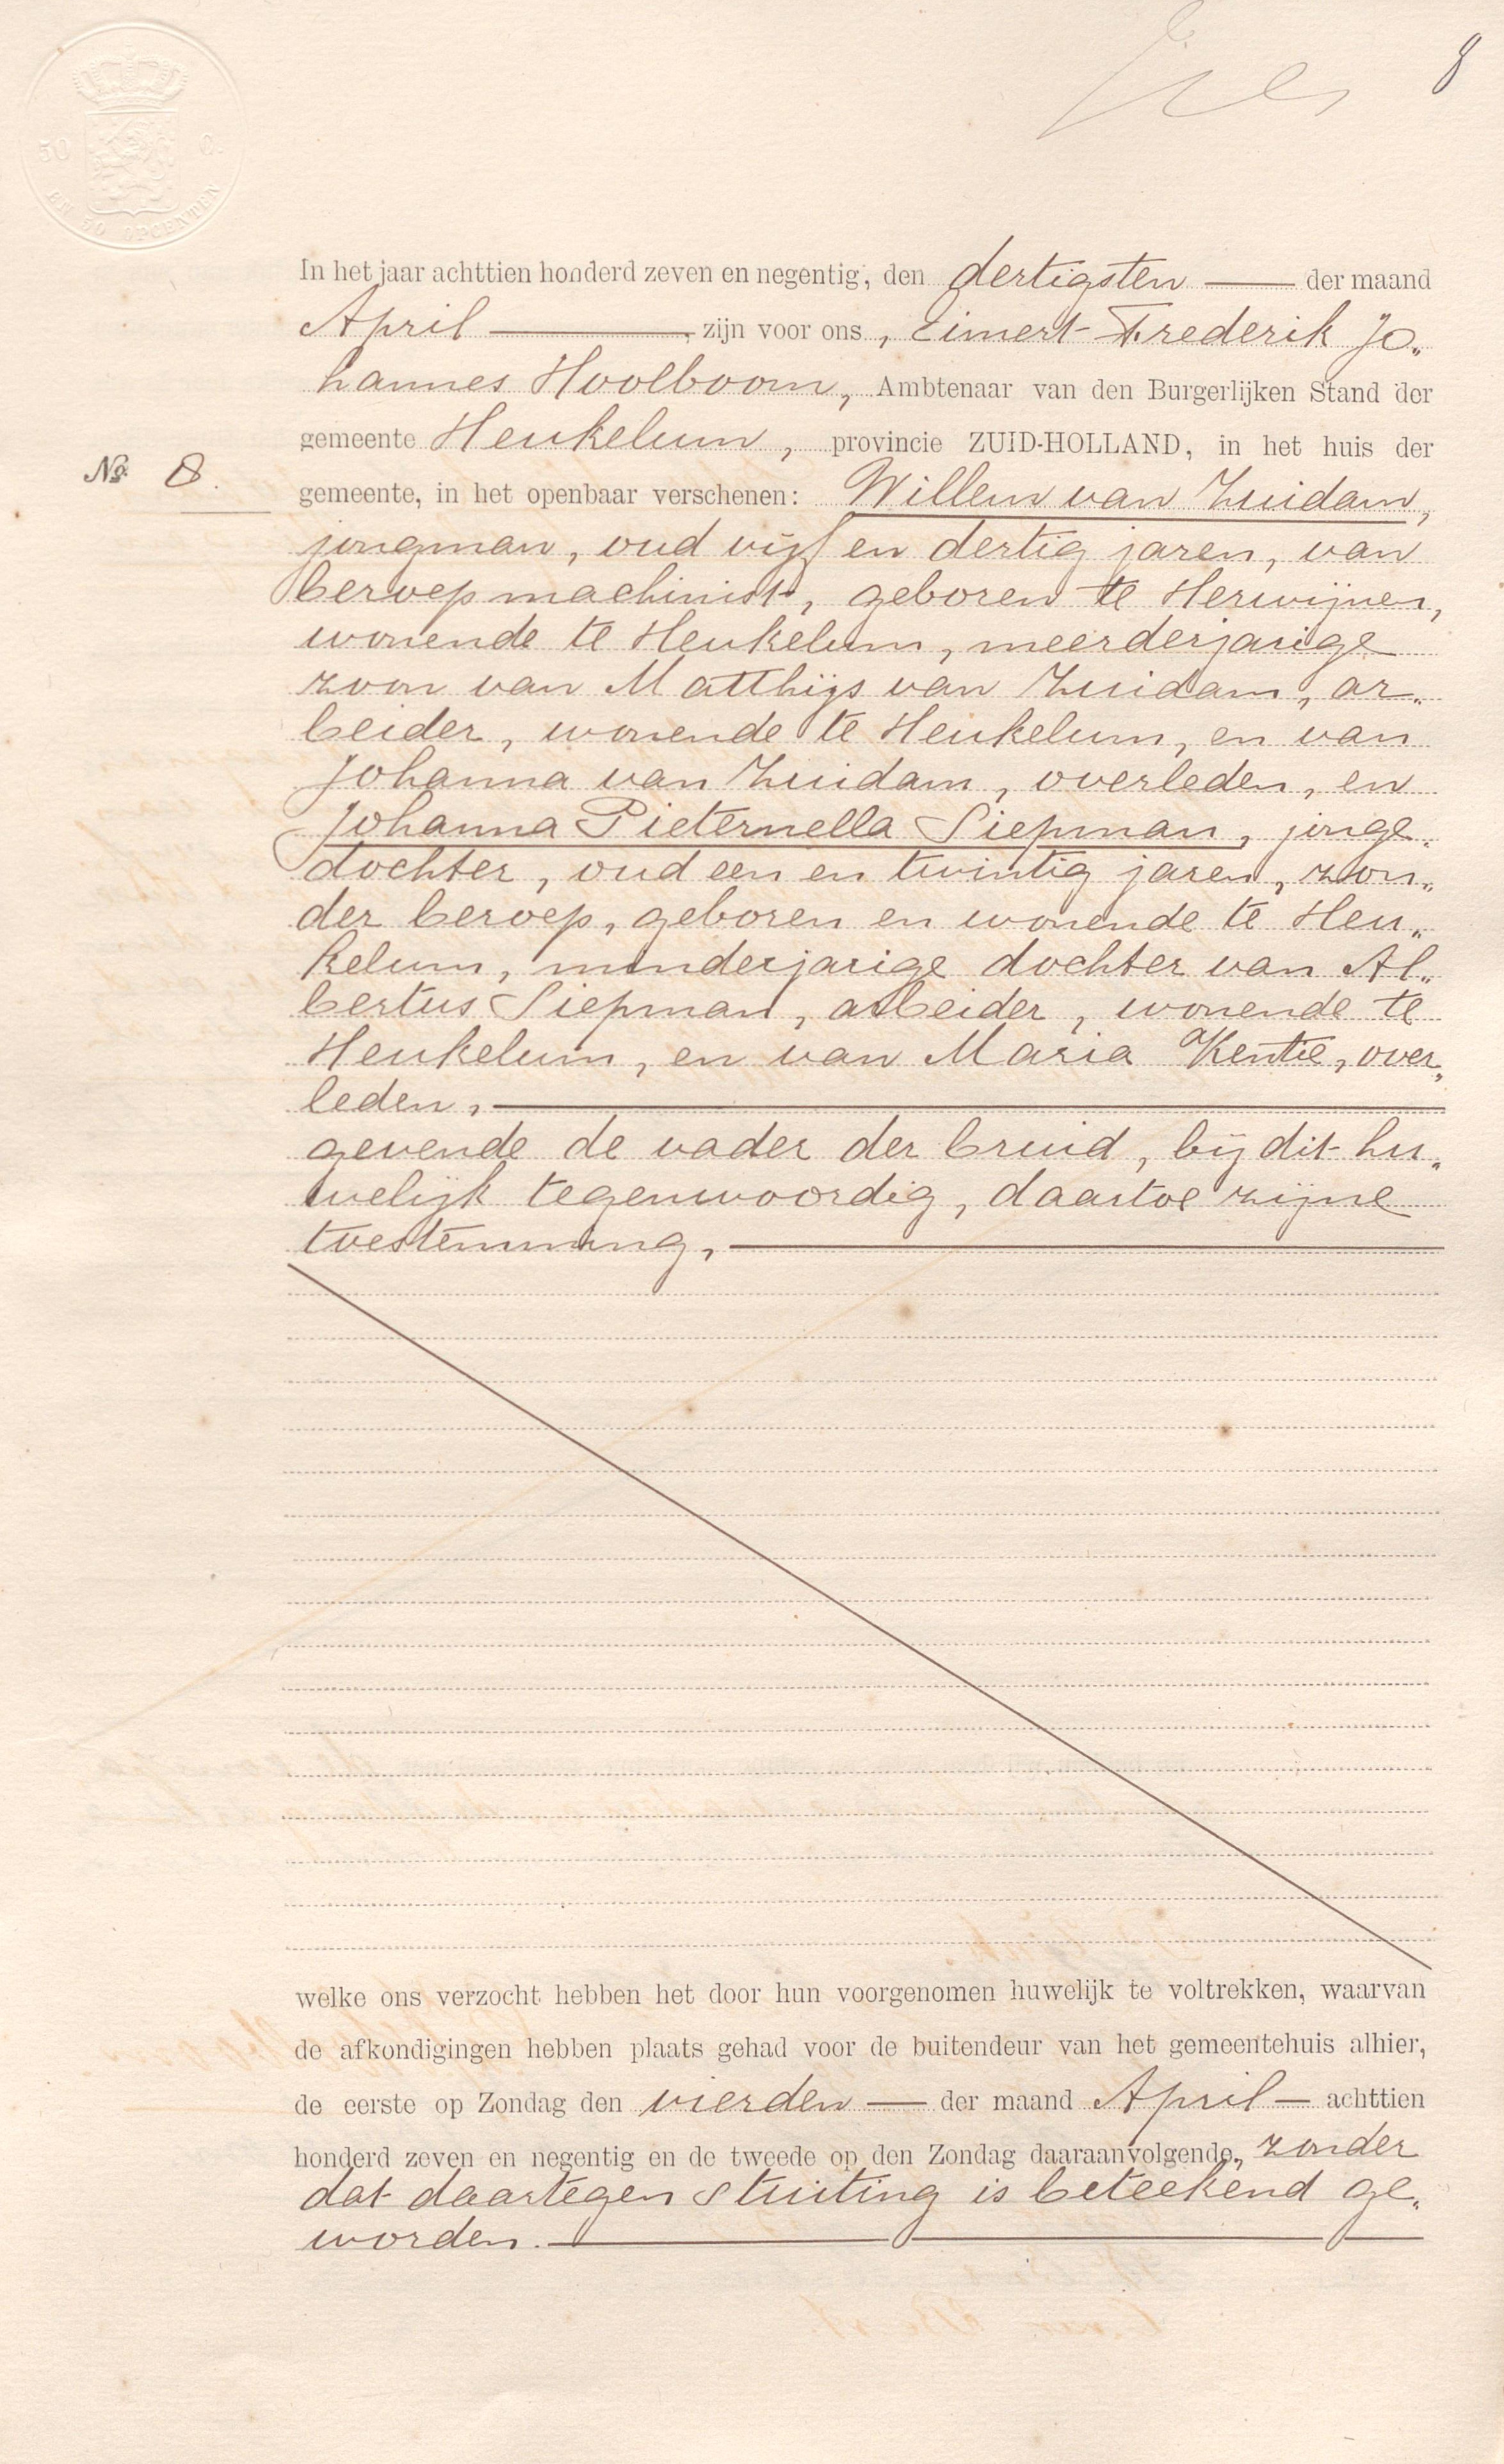 8
50 C.
EN 50 OPCENTEN
In het jaar achttien honderd zeven en negentig, den dertigsten — der maand
April —, zijn voor ons, Eimert Frederik Jo„
hannes Hoolboom, Ambtenaar van den Burgerlijken Stand der
gemeente Heukelum, provincie ZUID-HOLLAND, in het huis der
No. 8.
gemeente, in het openbaar verschenen: Willem van Zuidam,
jongman, oud vijf en dertig jaren, van
beroep machinist, geboren te Herwijnen,
wonende te Heukelum, meerderjarige
zoon van Matthijs van Zuidam, ar„
beider, wonende te Heukelum, en van
Johanna van Zuidam, overleden, en
Johanna Pieternella Siepman, jonge„
dochter, oud een en twintig jaren, zon„
der beroep, geboren en wonende te Heu„
kelum, minderjarige dochter van Al„
bertus Siepman, arbeider, wonende te
Heukelum, en van Maria Kentie, over„
leden, —
gevende de vader der bruid, bij dit hu„
welijk tegenwoordig, daartoe zijne
toestemming, —
welke ons verzocht hebben het door hun voorgenomen huwelijk te voltrekken, waarvan
de afkondigingen hebben plaats gehad voor de buitendeur van het gemeentehuis alhier,
de eerste op Zondag den vierden — der maand April — achttien
honderd zeven en negentig en de tweede op den Zondag daaraanvolgende, zonder
dat daartegen stuiting is beteekend ge„
worden. —